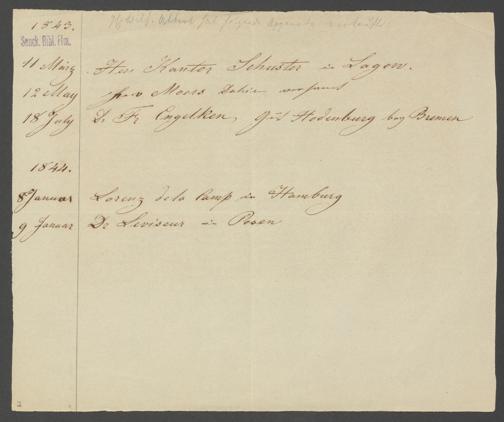 1843.
Senck. Bibl. Ffm.
11 März Herr Kantor Schuster in Lagow.
12 May Meers Dahier
18 July Dr Fr Engelken, Hodenburg bey Bremen
1844.
8 Januar Lorenz de la Camp in Hamburg
9 Januar Dr Leviseur in Posen